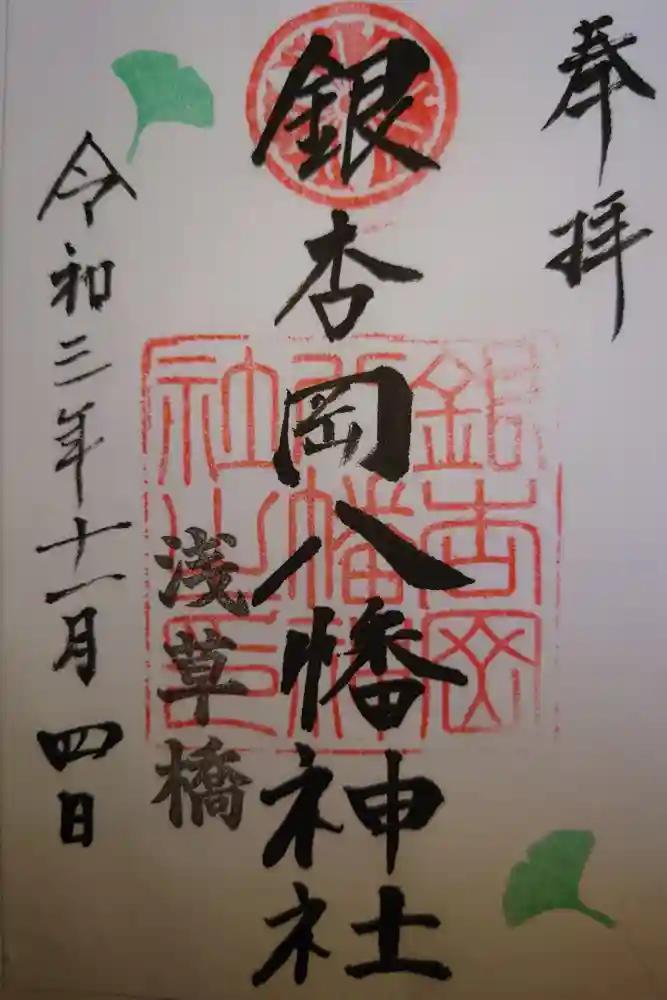 奉拝
銀杏岡八幡神社
銀杏岡
八幡神
社之印
浅草橋
令和三年十一月四日